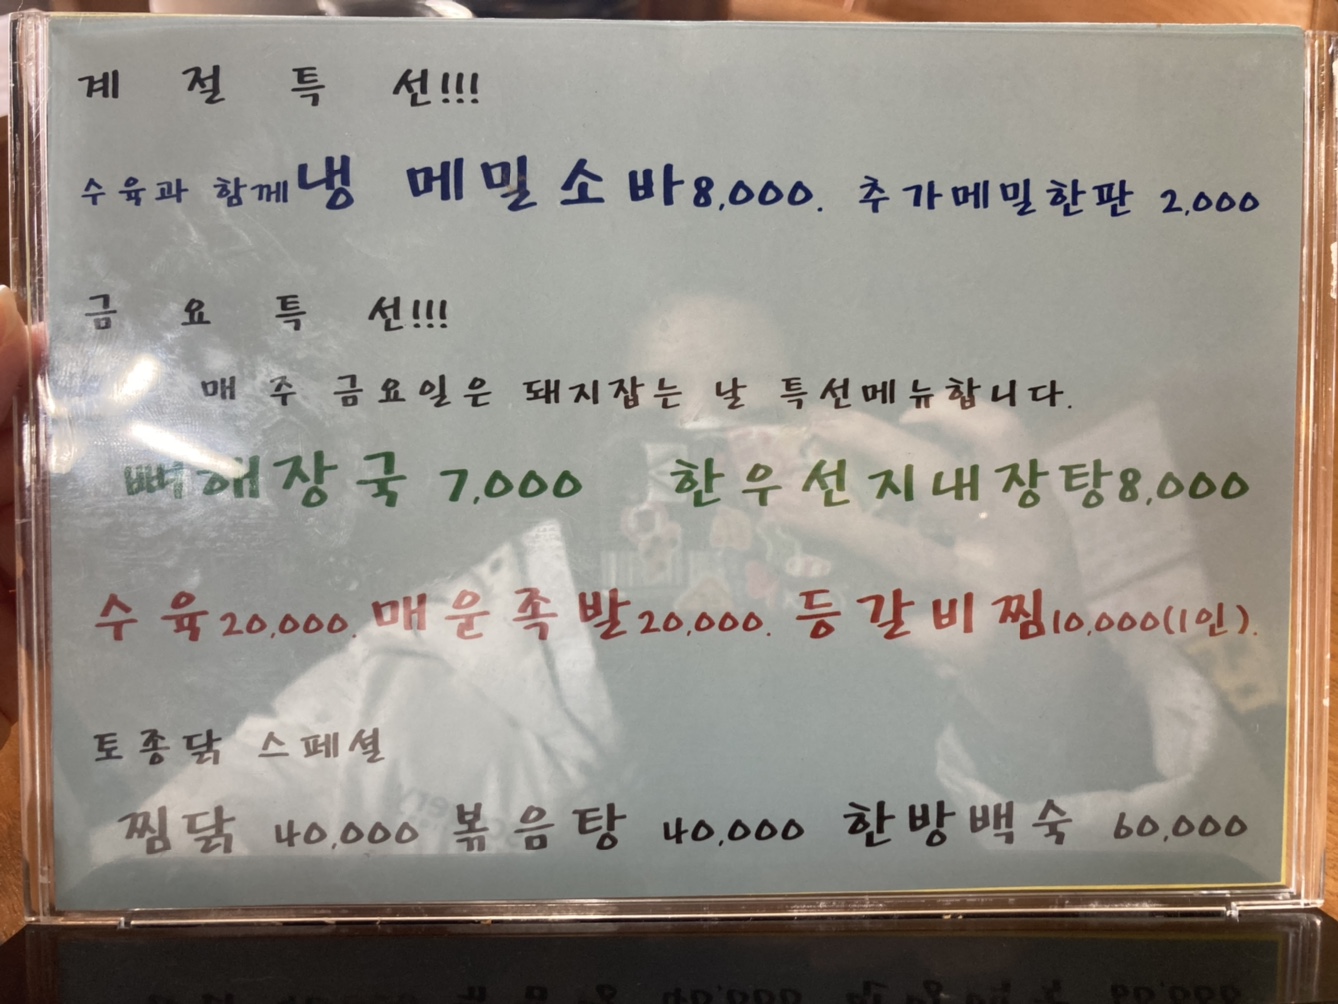 계 절 특 선!!!
수육과 함께 냉 메밀소바 8,000. 추가메밀한판 2,000
금 요 특 선!!!
매 주 금요일은 돼지잡는 날 특선메뉴합니다.
뼈해장국 7,000 한우선지내장탕 8,000
수육 20,000. 매운족발 20,000. 등갈비찜 10,000(1인).
토종닭 스페셜
찜닭 40,000 볶음탕 40,000 한방백숙 60,000